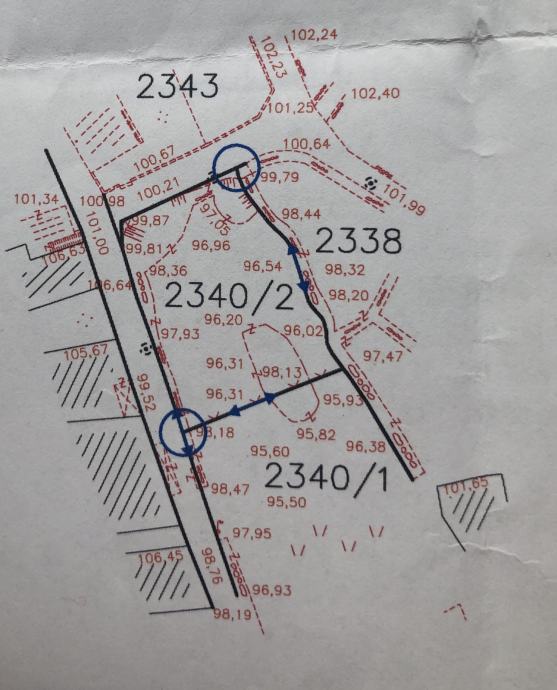 102,24
102,23
2343
102,40
101,25
100,64
100,67
99,79
101,99
100,21
101,34
100,98
97,05
98,44
99,87
101,00
2338
99,81
96,96
106,63
96,54
98,32
98,36
106,64
2340/2
98,20
96,20
96,02
97,93
105,67
97,47
96,31
98,13
99,52
96,31
95,93
98,18
95,82
96,38
95,60
2340/1
98,47
101,65
95,50
97,95
106,45
98,76
96,93
98,19